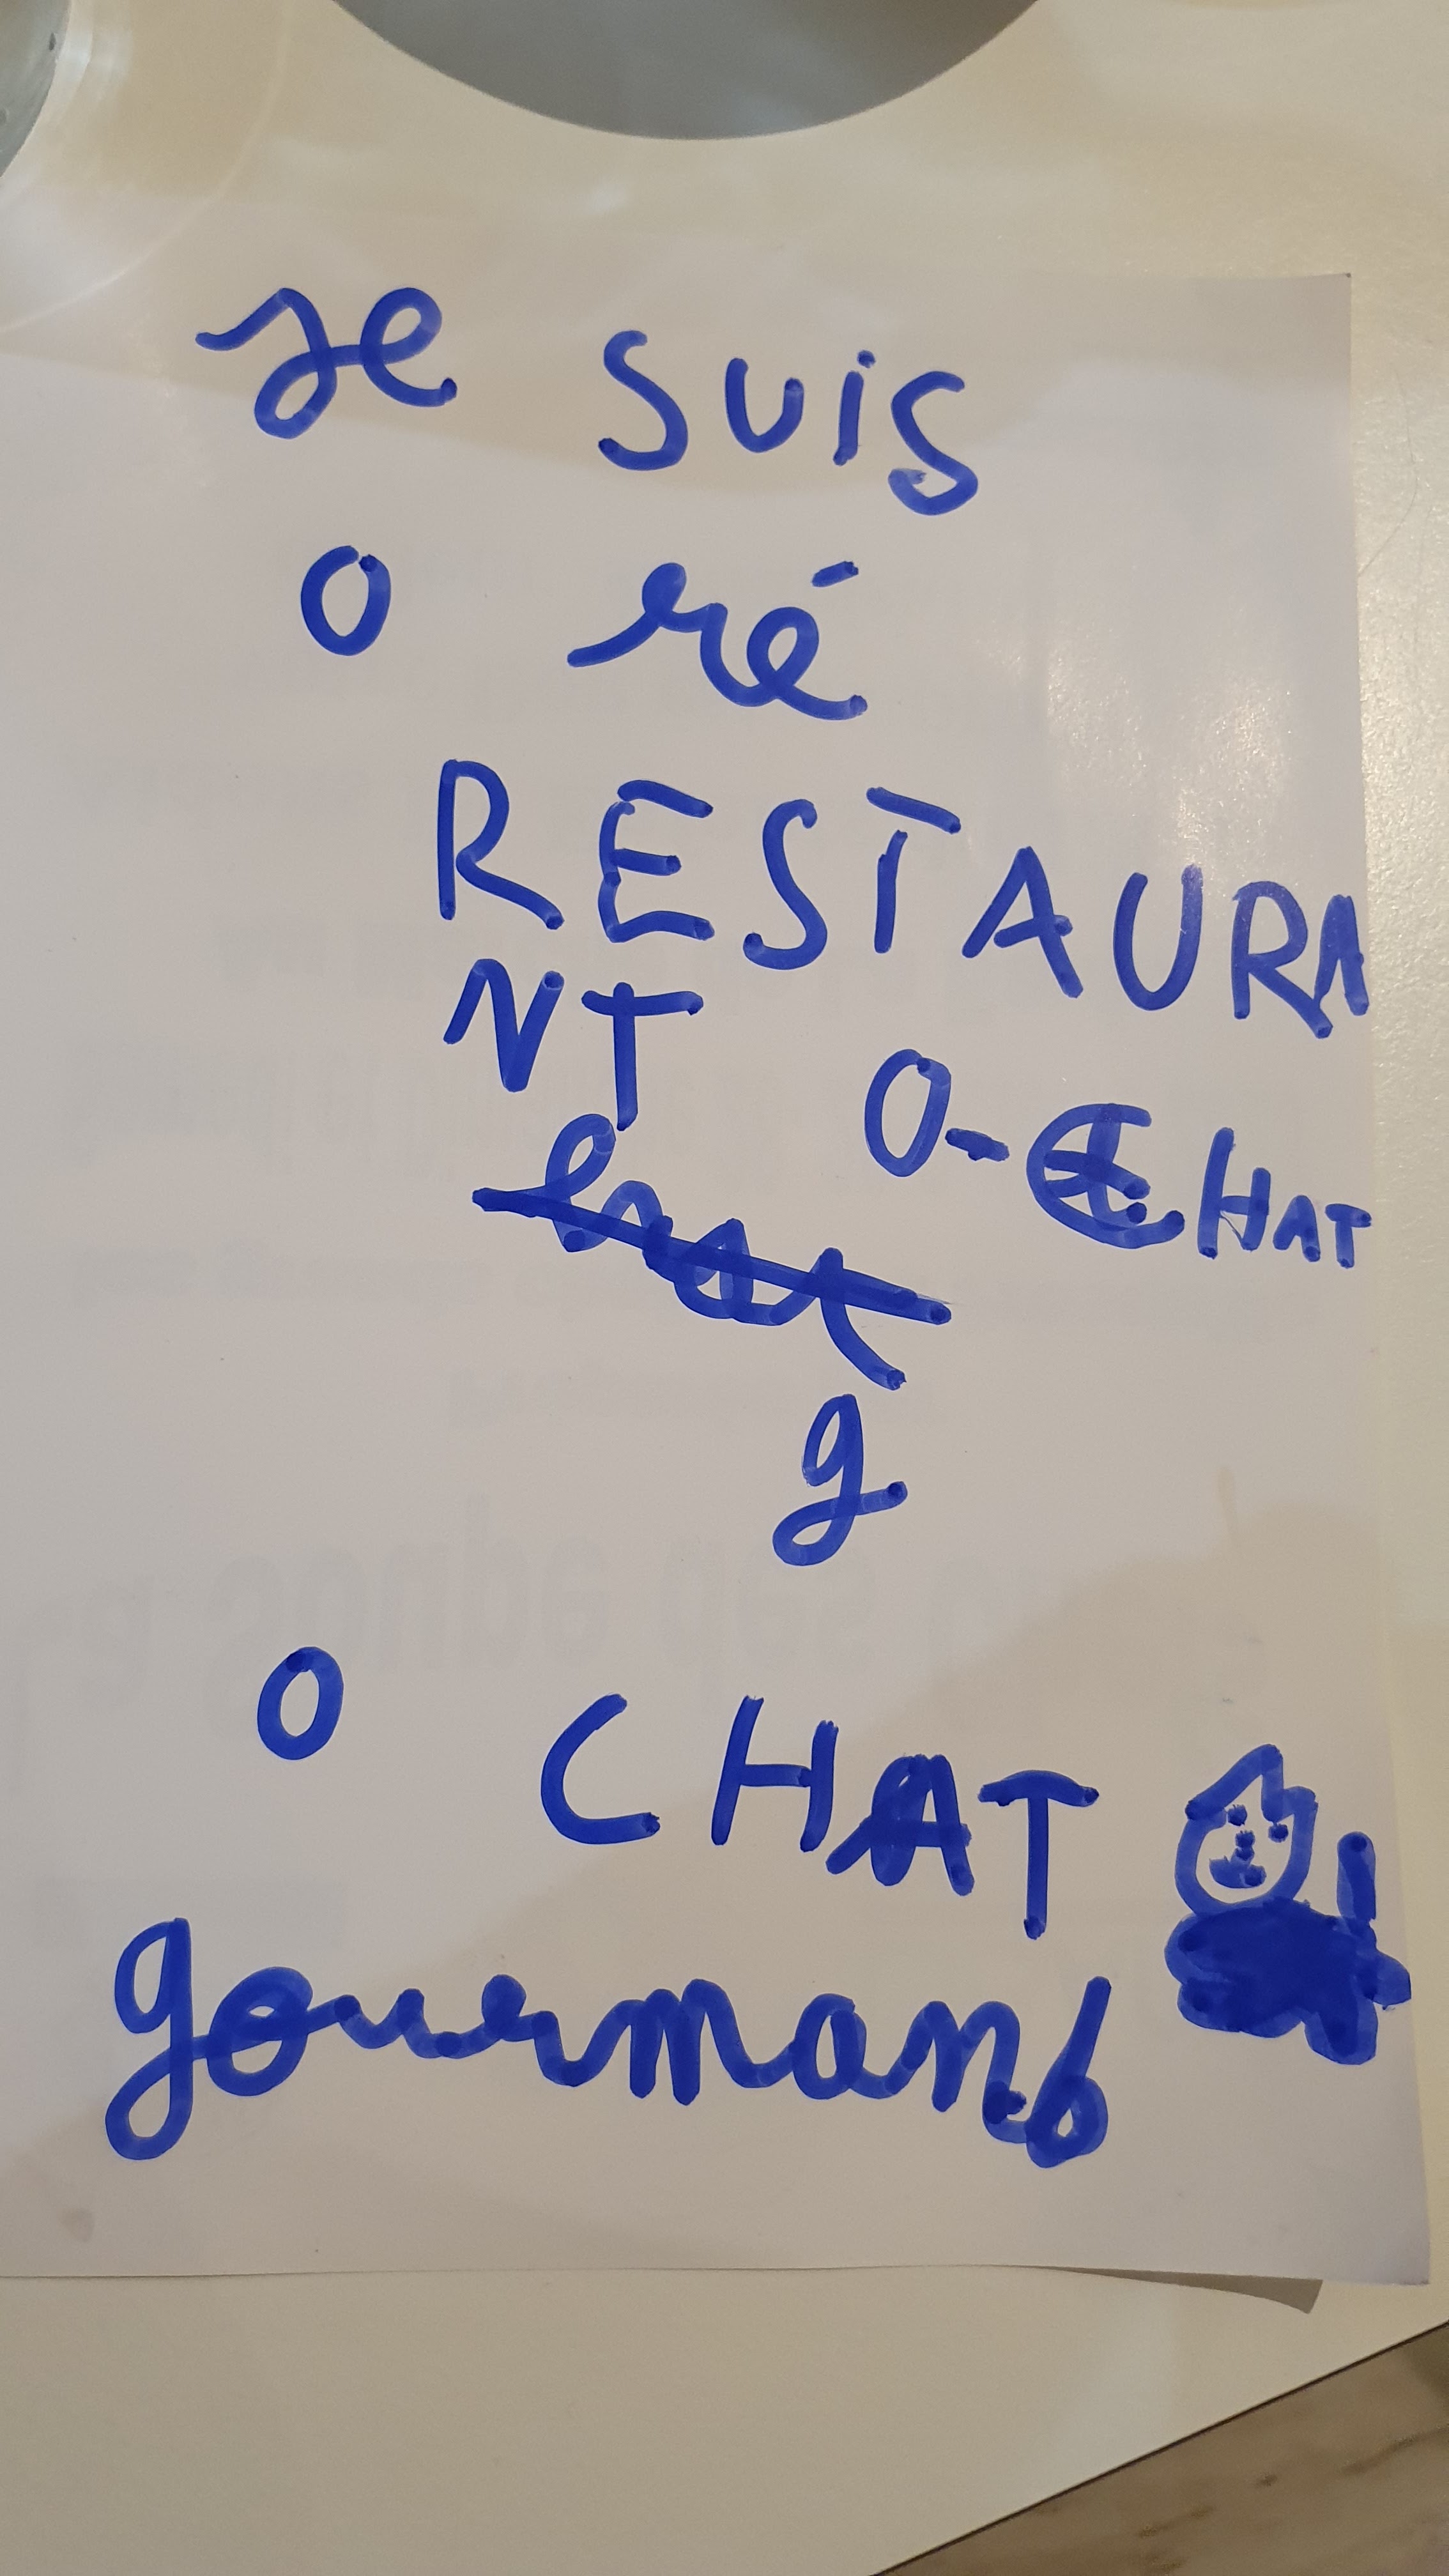 je suis
o ré
RESTAURA
NT O-CHAT
g
o CHAT
gourmand